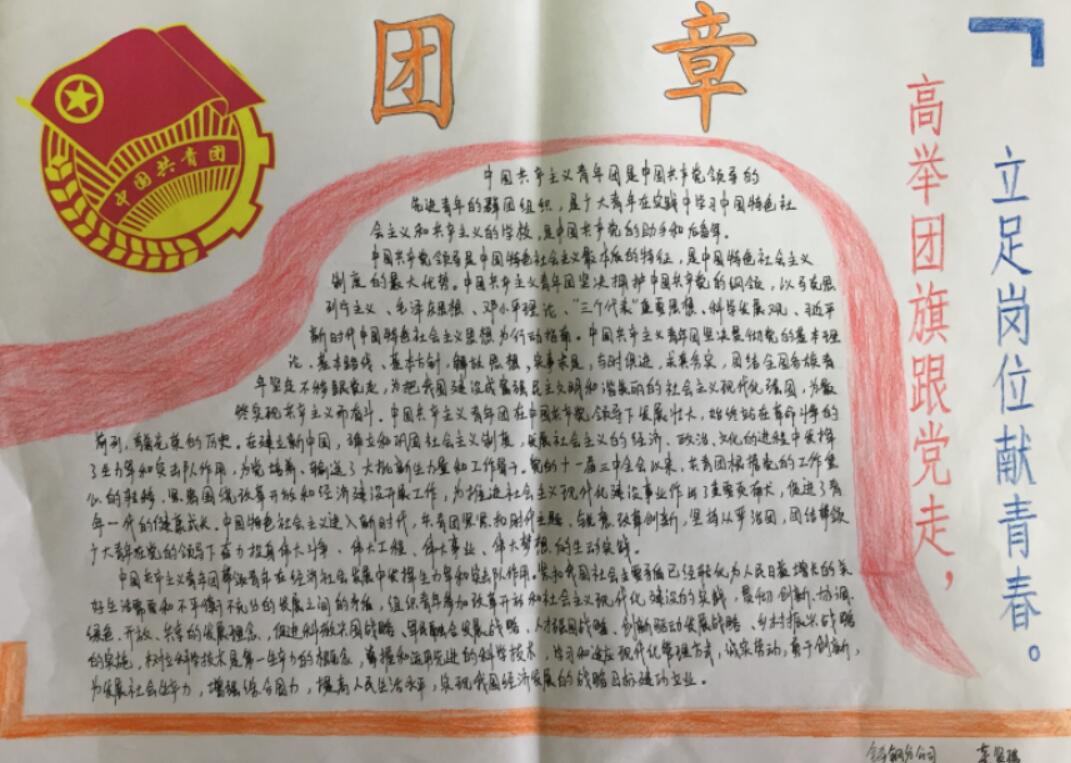 团 章
中国共青团
高举团旗跟党走，
立足岗位献青春。
中国共产主义青年团是中国共产党领导的
先进青年的群团组织，是广大青年在实践中学习中国特色社
会主义和共产主义的学校，是中国共产党的助手和后备军。
中国共产党领导是中国特色社会主义最本质的特征，是中国特色社会主义
制度的最大优势。中国共产主义青年团坚决拥护中国共产党的纲领，以马克思
列宁主义、毛泽东思想、邓小平理论、“三个代表”重要思想、科学发展观、习近平
新时代中国特色社会主义思想为行动指南。中国共产主义青年团坚决贯彻党的基本理
论、基本路线、基本方针，解放思想，实事求是，与时俱进，求真务实，团结全国各族青
年坚定不移跟党走，为把我国建设成富强民主文明和谐美丽的社会主义现代化强国，为最
终实现共产主义而奋斗。中国共产主义青年团在中国共产党领导下发展壮大，始终站在革命斗争的
前列，有着光荣的历史。在建立新中国，确立和巩固社会主义制度，发展社会主义的经济、政治、文化的进程中发挥
了生力军和突击队作用，为党培养、输送了大批新生力量和工作骨干。党的十一届三中全会以来，共青团根据党的工作重
心的转移，紧紧围绕改革开放和经济建设开展工作，为推进社会主义现代化建设事业作出了重要贡献，促进了青
年一代的健康成长。中国特色社会主义进入新时代，共青团紧紧扣时代主题，改革创新，坚持从严治团，团结带领
广大青年在党的领导下奋力投身伟大斗争、伟大工程、伟大事业、伟大梦想的生动实践。
中国共产主义青年团带领青年在经济社会发展中发挥生力军和突击队作用。紧扣我国社会主要矛盾已经转化为人民日益增长的美
好生活需要和不平衡不充分的发展之间的矛盾，组织青年参加改革开放和社会主义现代化建设的实践，贯彻创新、协调、
绿色、开放、共享的发展理念，促进科教兴国战略、军民融合发展战略、人才强国战略、创新驱动发展战略、乡村振兴战略
的实施，树立科学技术是第一生产力的概念，掌握和运用先进的科学技术，学习和适应现代化管理方式，诚实劳动，勇于创新，
为发展社会生产力，增强综合国力，提高人民生活水平，实现我国经济发展的战略目标建功立业。
分公司